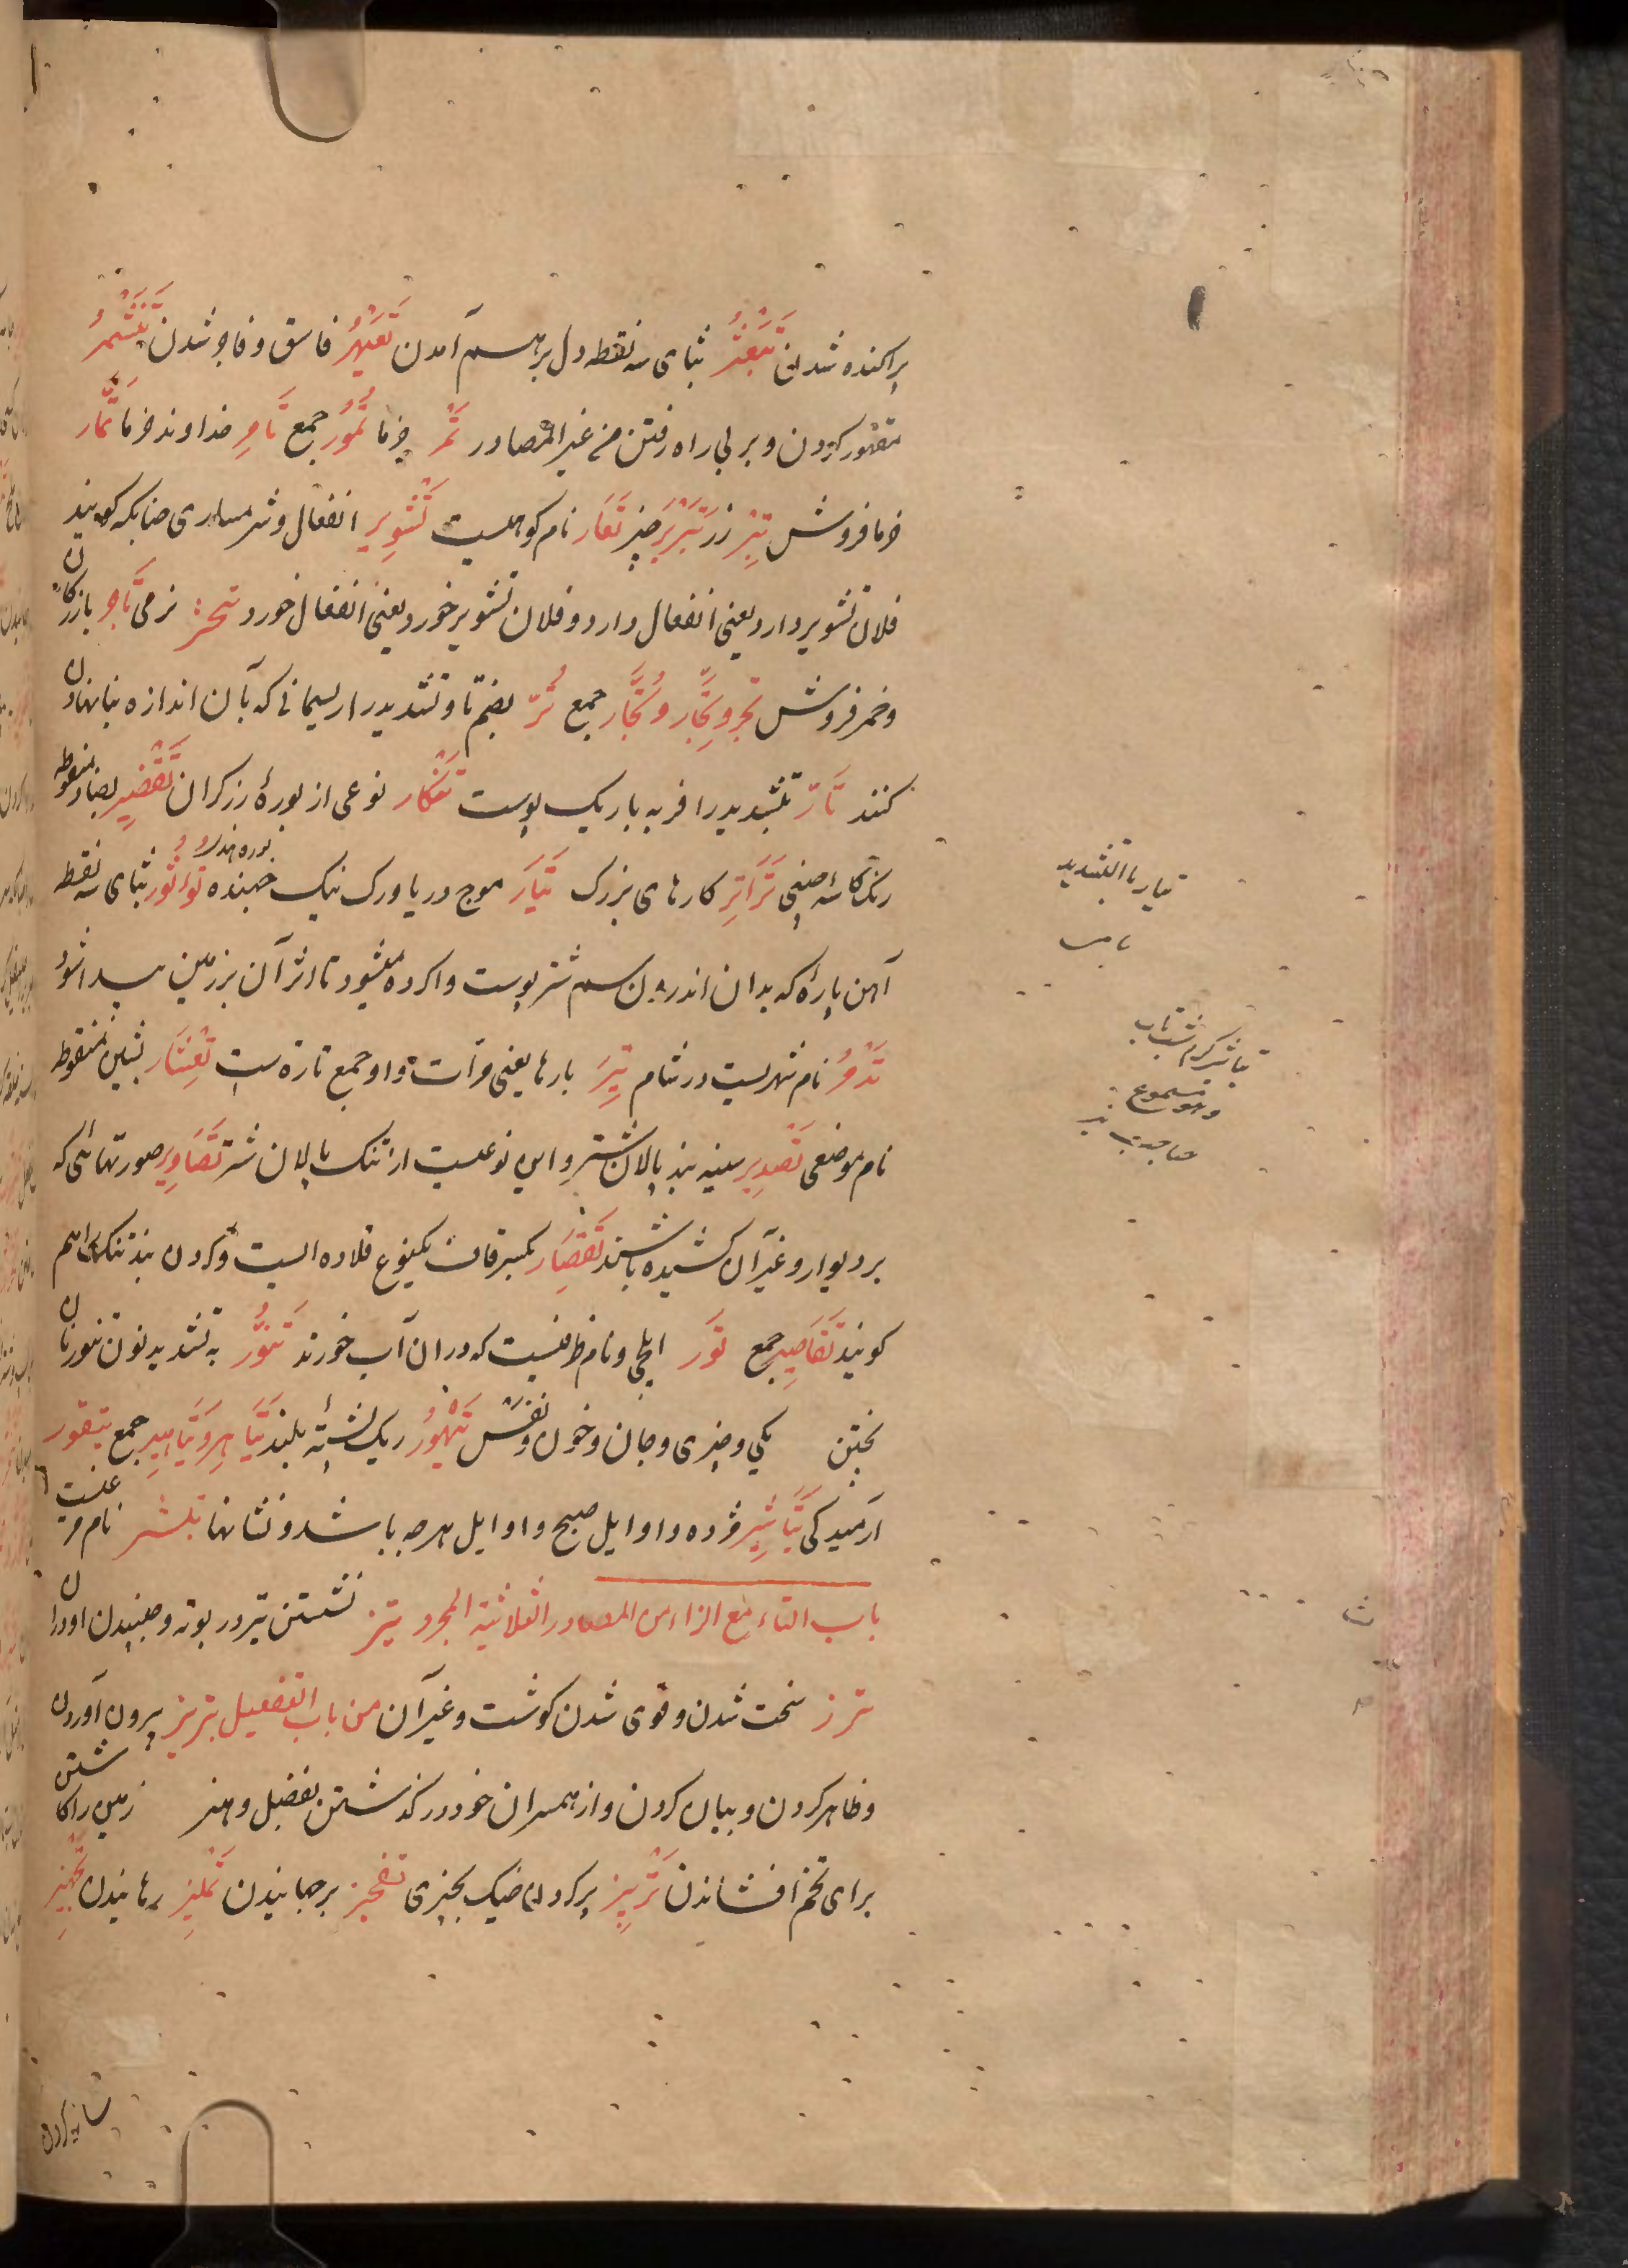 پراکنده شدن تَبَغْثُر بثای سه نقطه دل برهم آمدن تَعَیْهُر فاسق و فاجر شدن تَغَشْمُر
مقهور کردن و بر بی راه رفتن من غیر المصادر تَمْر خرما تُمُور جمع تَامِر خداوند خرما تَمَّار
خرما فروش تِبْر زر تَبْرِیر چیز تَعَار نام کوهیست تَشْوِیر انفعال و شرمساری چنانکه گویند
فلان تشویر دارد یعنی انفعال دارد و فلان تشویر خورد یعنی انفعال خورد نرمی تَاجِر بازرگان
و خمر فروش تَجْر و تِجَار و تُجَّار جمع تُرّ بضم تا و تشدید را ریسمانی که بآن اندازه بناها
کنند تَارّ بتشدید را فربه باریک پوست تَنْکَار نوعی از بورهٔ زرگران تَقْضِیر بضاد منقوطه
رنگ کاسه چینی تَرَاتِر کارهای بزرگ تَیَّار موج دریا و رگ نیک جهنده تُؤْثُور بثای سه نقطه
آهن پارهٔ که بدان اندرون سم شتر پوست واکرده میشود تا اثر آن بر زمین پیدا شود
تَدْمُر نام شهریست در شام تِیَر بارها یعنی مرات و او جمع تارة ست تِعْشَار بشین منقوطه
نام موضعی تَصْدِیر سینه بند پالان شتر و این نوعیست از تنگ پالان شتر تَصَاوِیر صورتهائی که
بر دیوار و غیر آن کشیده باشند تِقْصَار بکسر قاف یکنوع قلاده ایست و گردن بند تنگ را هم
گویند تَقَاصِیر جمع تَوْر ایلچی و نام ظرفیست که در آن آب خورند تَنُّور به تشدید نون تنور نان
پختن یکی و چیزی و جان و خون و نفس تَیْهُور ریگ پشتهٔ بلند تَیَاهِر و تَیَاهِیر جمع تیقور
آرمیدگی تَبَاشِیر مژده و اوایل صبح و اوایل هر چه باشد و نشانها تبشر نام مرغیست
باب التاء مع الزاء من المصادر الثلاثیة المجرد تیز نشستن تیر در بوته و جنبیدن او در آن
ترز سخت شدن و قوی شدن گوشت و غیر آن من باب التفعیل تبریز بیرون آوردن
و ظاهر کردن و بیان کردن و از همسران خود در گذشتن بفضل و هنر زمین را کاشتن
برای تخم افشاندن تَرْبِیز پر کردن خیک بچیزی تفجیز برجهانیدن تَمْلِیز رهانیدن تَجْهِیز
تیار بالتشدید